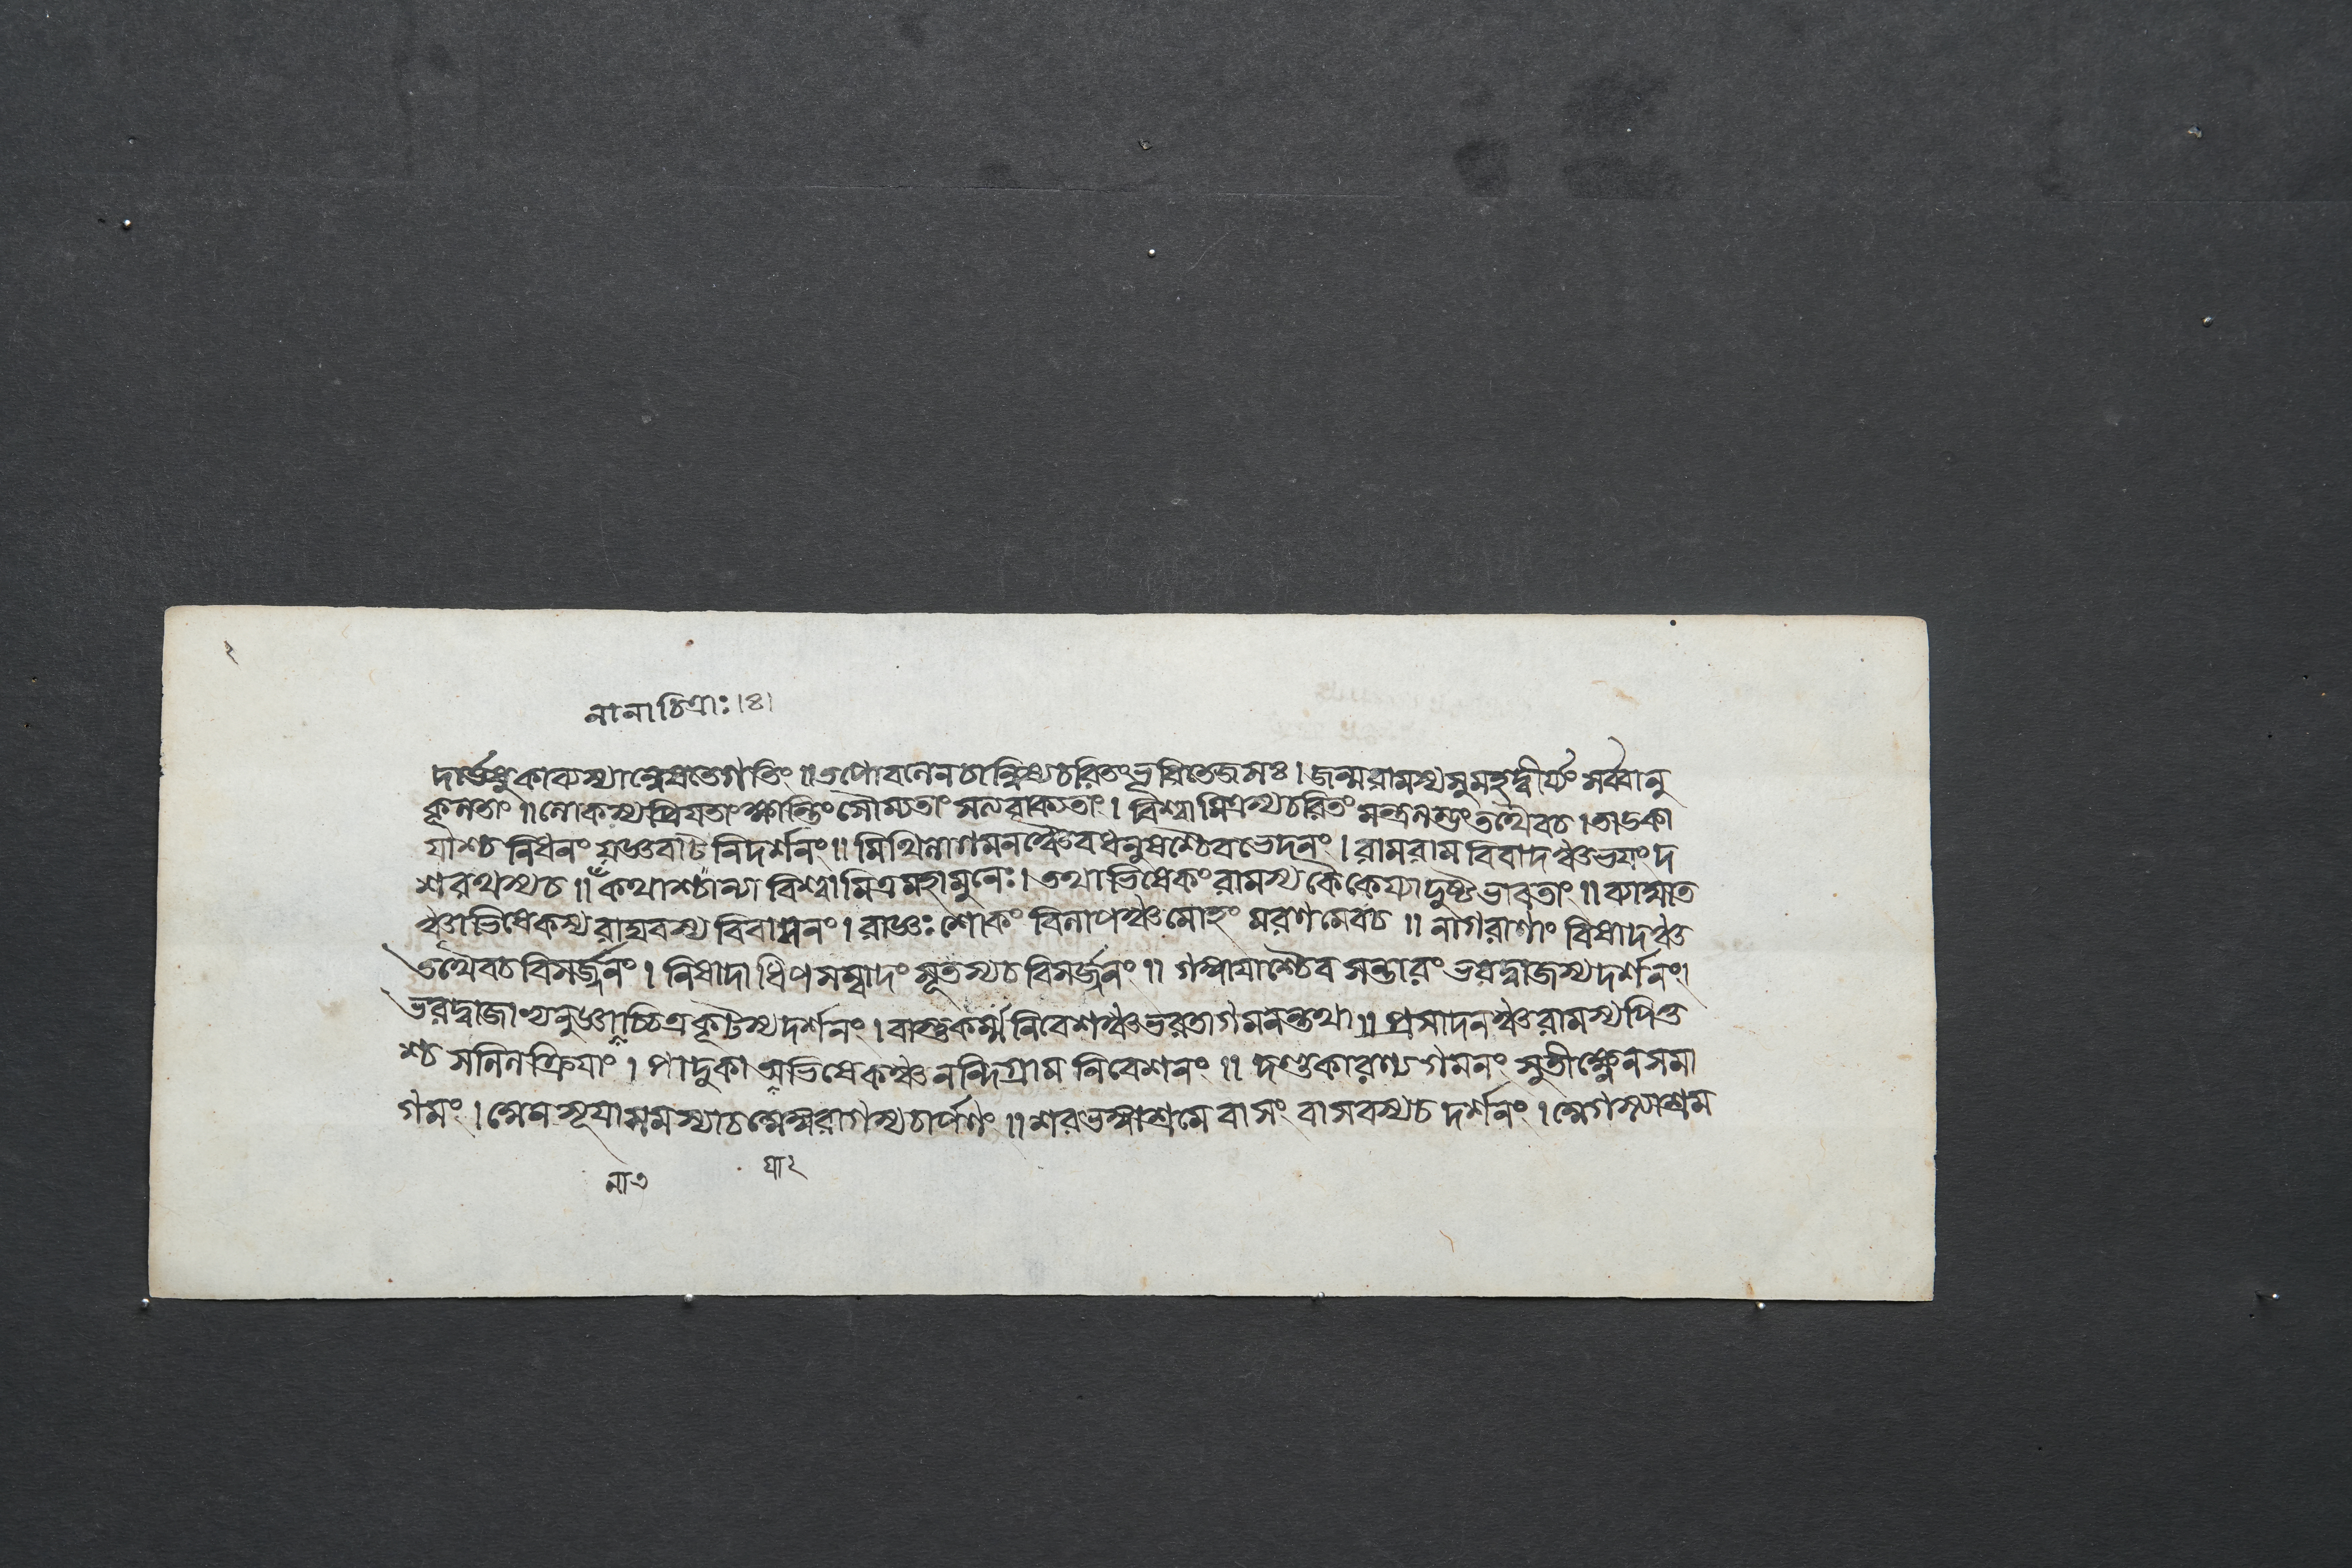 নানা চিত্রাঃ।৪।
দর্ভেষু কাব্যস্যান্বেষতে গতিং ॥ তপোবনেন চান্বিষ্য চরিতং ভূরিতেজসঃ । জন্ম রামস্য সুমহদ্বীর্য্যং সর্ব্বানু
কূলতাং ॥ লোকস্য প্রিযতাং ক্ষান্তিং সৌম্যতাং সত্যবাক্যতাং । বিশ্বামিত্রস্য চরিতং তথৈব চ । তাডকা
যাশ্চ নিধনং যজ্ঞবাট নিদর্শনং ॥ মিথিলাগমনঞ্চৈব ধনুষশ্চৈব ভেদনং । রামরাম বিবাদঞ্চ ভযং দ
শরথস্য চ ॥ কথাশ্চান্যা বিশ্বামিত্রমহামুনেঃ । তথাভিষেকং রামস্য কৈকেয্যা দুষ্টভাবতাং ॥ ব্যাঘাত
ঞ্চাভিষেকস্য রাঘবস্য বিবাসনং । রাজ্ঞঃ শোকং বিলাপঞ্চ মোহং মরণমেব চ ॥ নাগরাণাং বিষাদঞ্চ
তথৈব চ বিসর্জ্জনং । নিষাদাধিপ সম্বাদং সূতস্য চ বিসর্জ্জনং ॥ গঙ্গাযাশ্চৈব সন্তারং ভরদ্বাজস্য দর্শনং।
ভরদ্বাজাভ্যনুজ্ঞাচ্চিত্রকূটস্য দর্শনং । বাস্তুকর্ম্ম নিবেশঞ্চ ভরতাগমনন্তথা ॥ প্রসাদনঞ্চ রামস্য পিতু
শ্চ সলিলক্রিযাং । পাদুকা অভিষেকঞ্চ নন্দিগ্রাম নিবেশনং ॥ দণ্ডকারণ্য গমনং সুতীক্ষ্ণেন সমা
গমং । অঙ্গরাগস্য চার্পণং ॥ শরভঙ্গাশ্রমে বাসং বাসবস্য চ দর্শনং ।